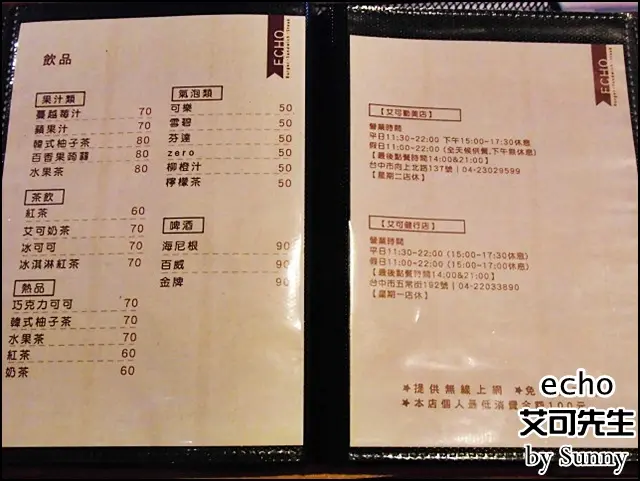 飲品
ECHO
Burger‧Sandwich‧Steak
果汁類
蔓越莓汁 70
蘋果汁 70
韓式柚子茶 80
百香果蒟蒻 80
水果茶 80
茶飲
紅茶 60
艾可奶茶 70
冰可可 70
冰淇淋紅茶 70
熱品
巧克力可可 70
韓式柚子茶 70
水果茶 70
紅茶 60
奶茶 60
氣泡類
可樂 50
雪碧 50
芬達 50
zero 50
柳橙汁 50
檸檬茶 50
啤酒
海尼根 90
百威 90
金牌 90
ECHO
【艾可勤美店】
營業時間
平日11:30-22:00 下午15:00-17:30休息
假日11:00-22:00 (全天候供餐,下午無休息)
【最後點餐時間14:00&21:00】
台中市向上北路137號 | 04-23029599
【星期二店休】
【艾可健行店】
營業時間
平日11:30-22:00 (15:00-17:30休息)
假日11:00-22:00 (15:00-17:00休息)
【最後點餐時間14:00&21:00】
台中市五常街192號 | 04-22033890
【星期一店休】
★提供無線上網 ★免
★本店個人最低消費金額100元
echo
艾可先生
by Sunny